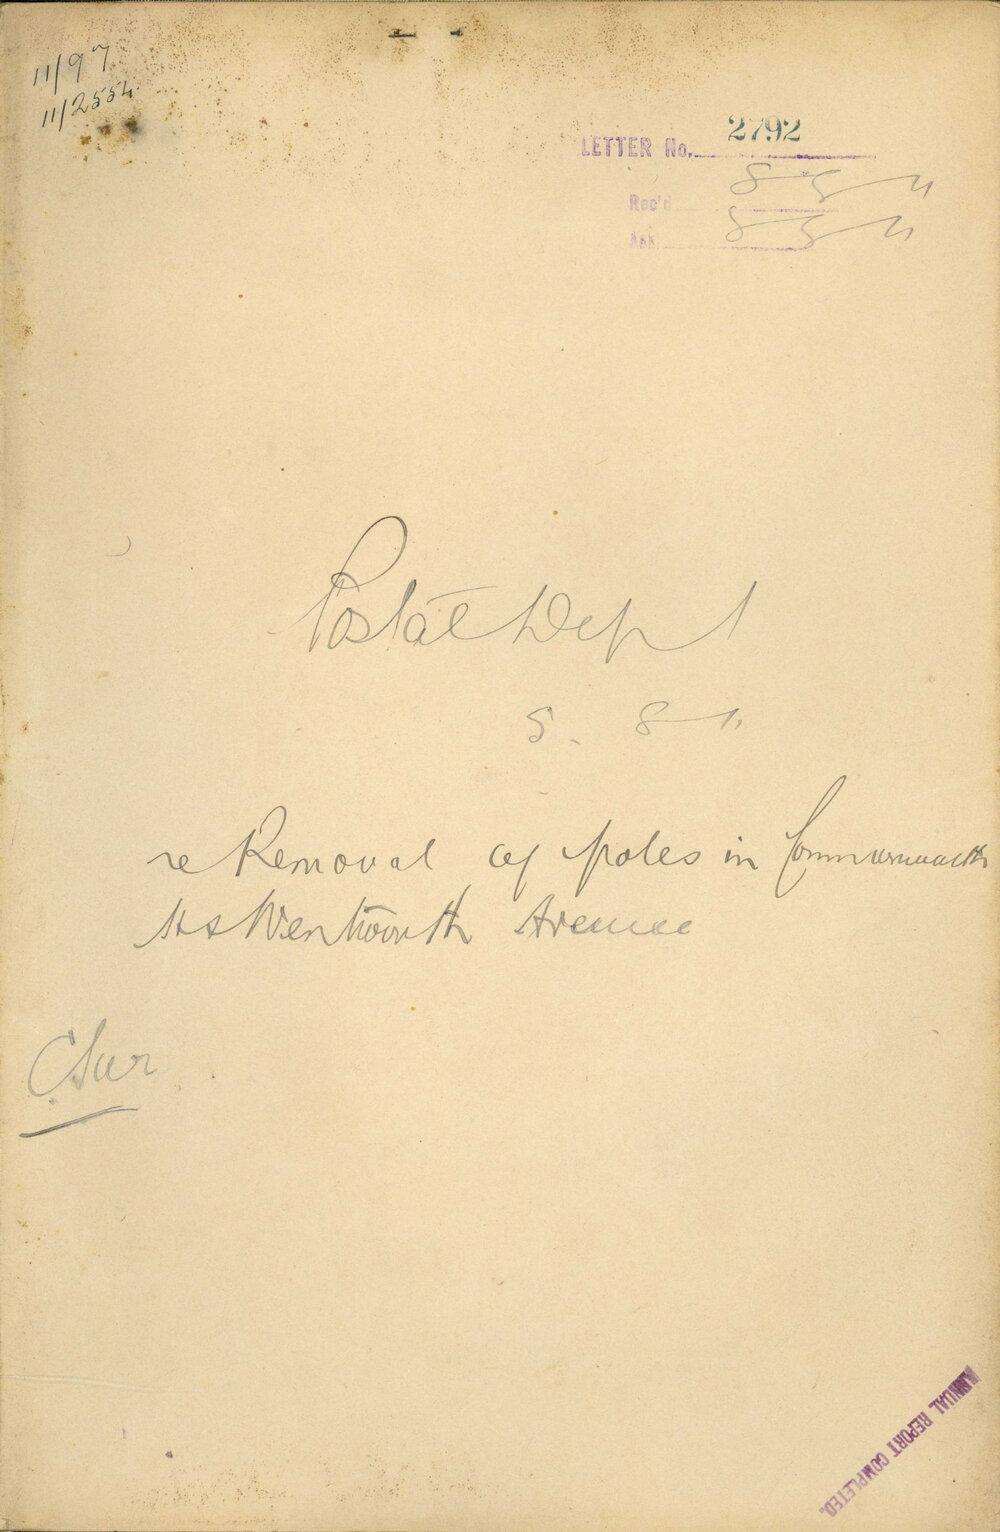 11/97
11/2554
LETTER No. 2792
Rec'd 8 8 11
Ask. 8 8 11
Postal Dept
8. 8 11
re Removal of poles in Commonwealth
St & Wentworth Avenue
C. Sur
ANNUAL REPORT COMPLETED.